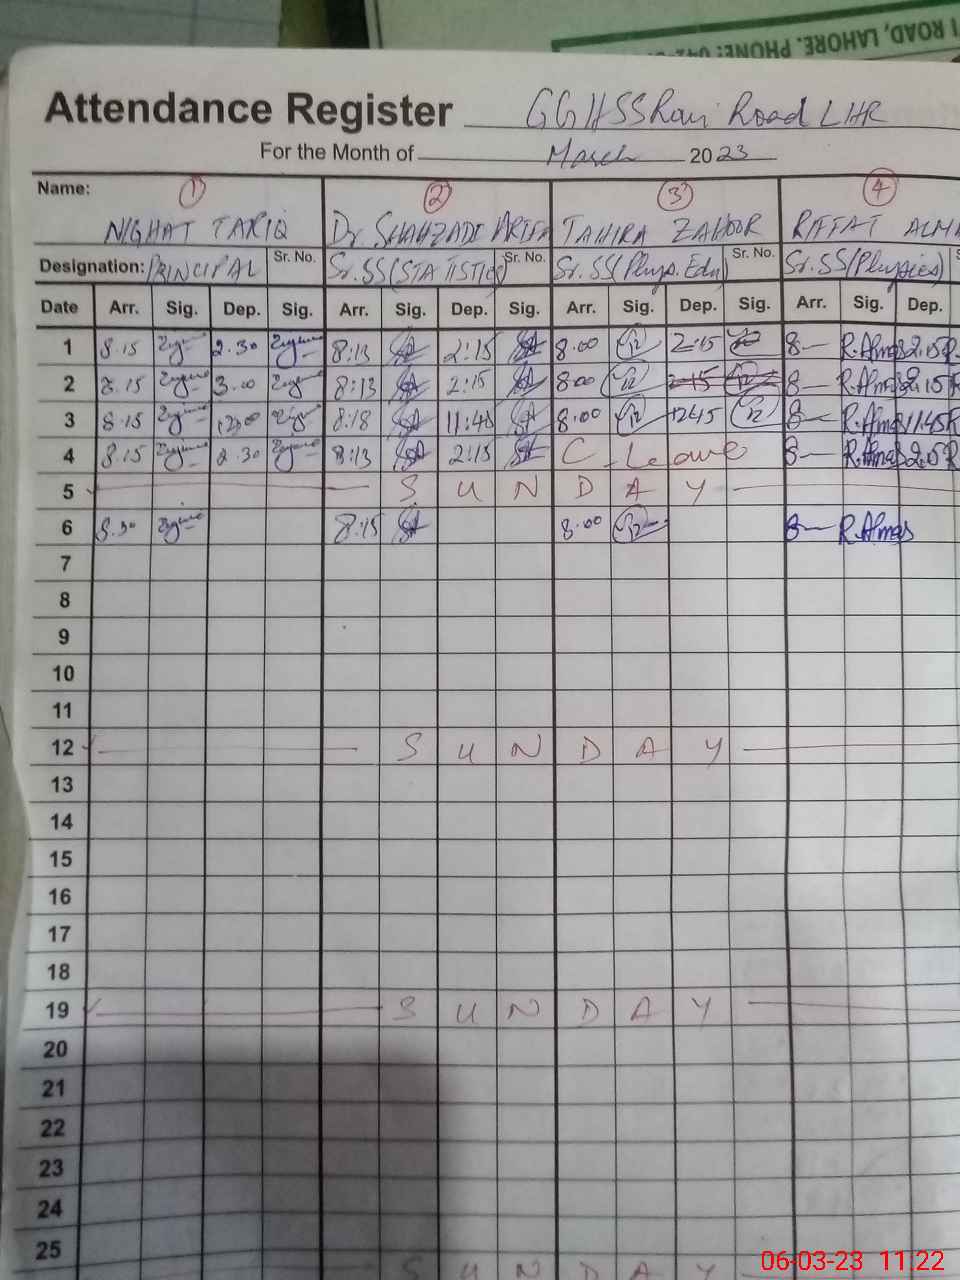 I ROAD, LAHORE. PHONE: 042-
Attendance Register GGHSS Ravi Road LHR
For the Month of March 2023
Name: 1 2 3 4
NIGHAT TARIQ Dr. SHAHZADI ARIFA TAHIRA ZAHOOR RIFFAT ALMA
Designation: PRINCIPAL Sr. No. Sr.SS(STATISTICS) Sr. No. Sr.SS(Phys.Edu) Sr. No. Sr.SS(Physics) S
Date Arr. Sig. Dep. Sig. Arr. Sig. Dep. Sig. Arr. Sig. Dep. Sig. Arr. Sig. Dep.
1 8.15 2.30 8:13 2:15 8.00 2:15 8- R.Almas 2.15 R
2 8.15 3.00 8:13 2:15 8.00 2:15 8- R.Almas 2.15 R
3 8.15 8:18 11:45 8.00 1245 8- R.Almas 11.45 R
4 8.15 2.30 8:13 2:15 C-Leave 8- R.Almas R
5 SUNDAY
6 8.30 8:15 8.00 8- R.Almas
7
8
9
10
11
12 SUNDAY
13
14
15
16
17
18
19 SUNDAY
20
21
22
23
24
25
SUNDAY
06-03-23 11.22